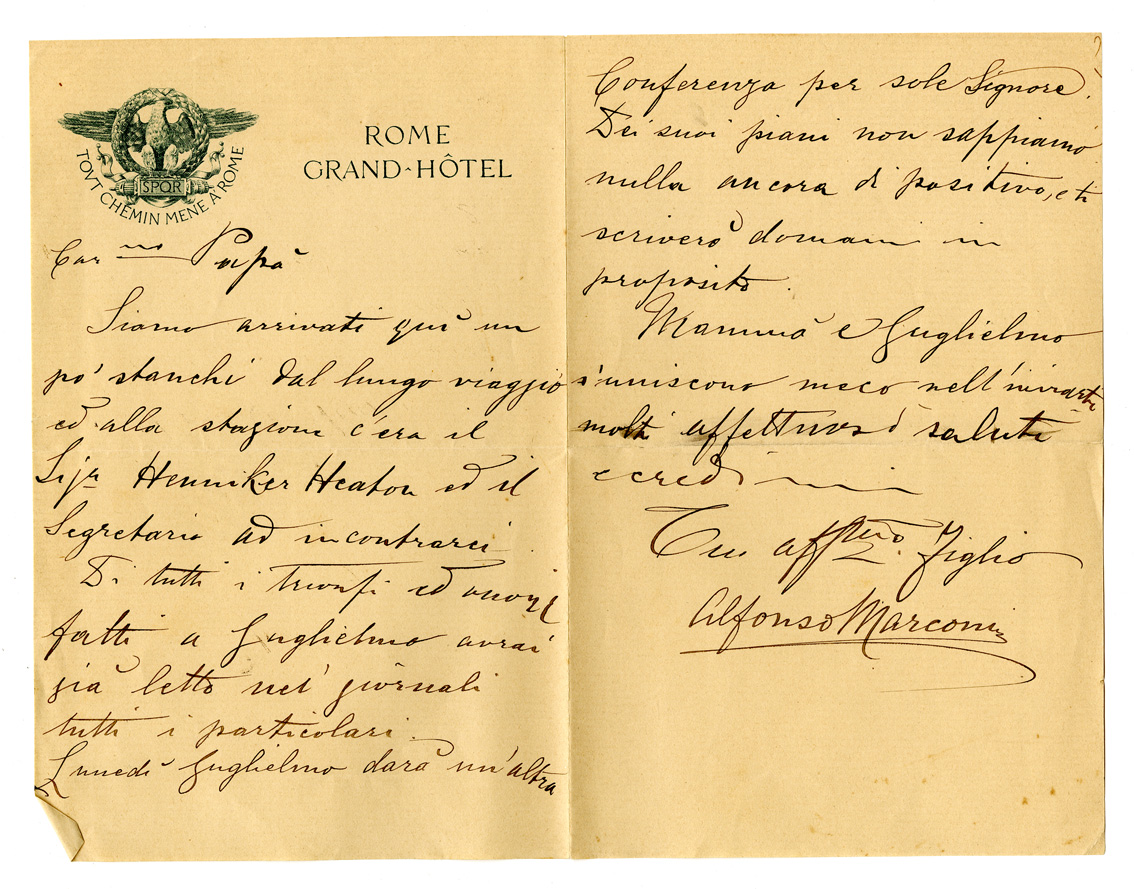 SPQR
TOVT CHEMIN MENE A ROME
ROME
GRAND-HÔTEL
Car.mo Papà
Siamo arrivati quì un
po' stanchi dal lungo viaggio
ed alla stazione c'era il
Sigr Henniker Heaton ed il
Segretario ad incontrarci.
Di tutti i trionfi ed onori
fatti a Guglielmo avrai
già letto nei giornali
tutti i particolari.
Lunedì Guglielmo darà un'altra
Conferenza per sole Signore.
Dei suoi piani non sappiamo
nulla ancora di positivo, e ti
scriverò domani in
proposito.
Mammà e Guglielmo
s'uniscono meco nell'inviarti
molti affettuosi saluti
e credimi
Tuo aff.mo Figlio
Alfonso Marconi